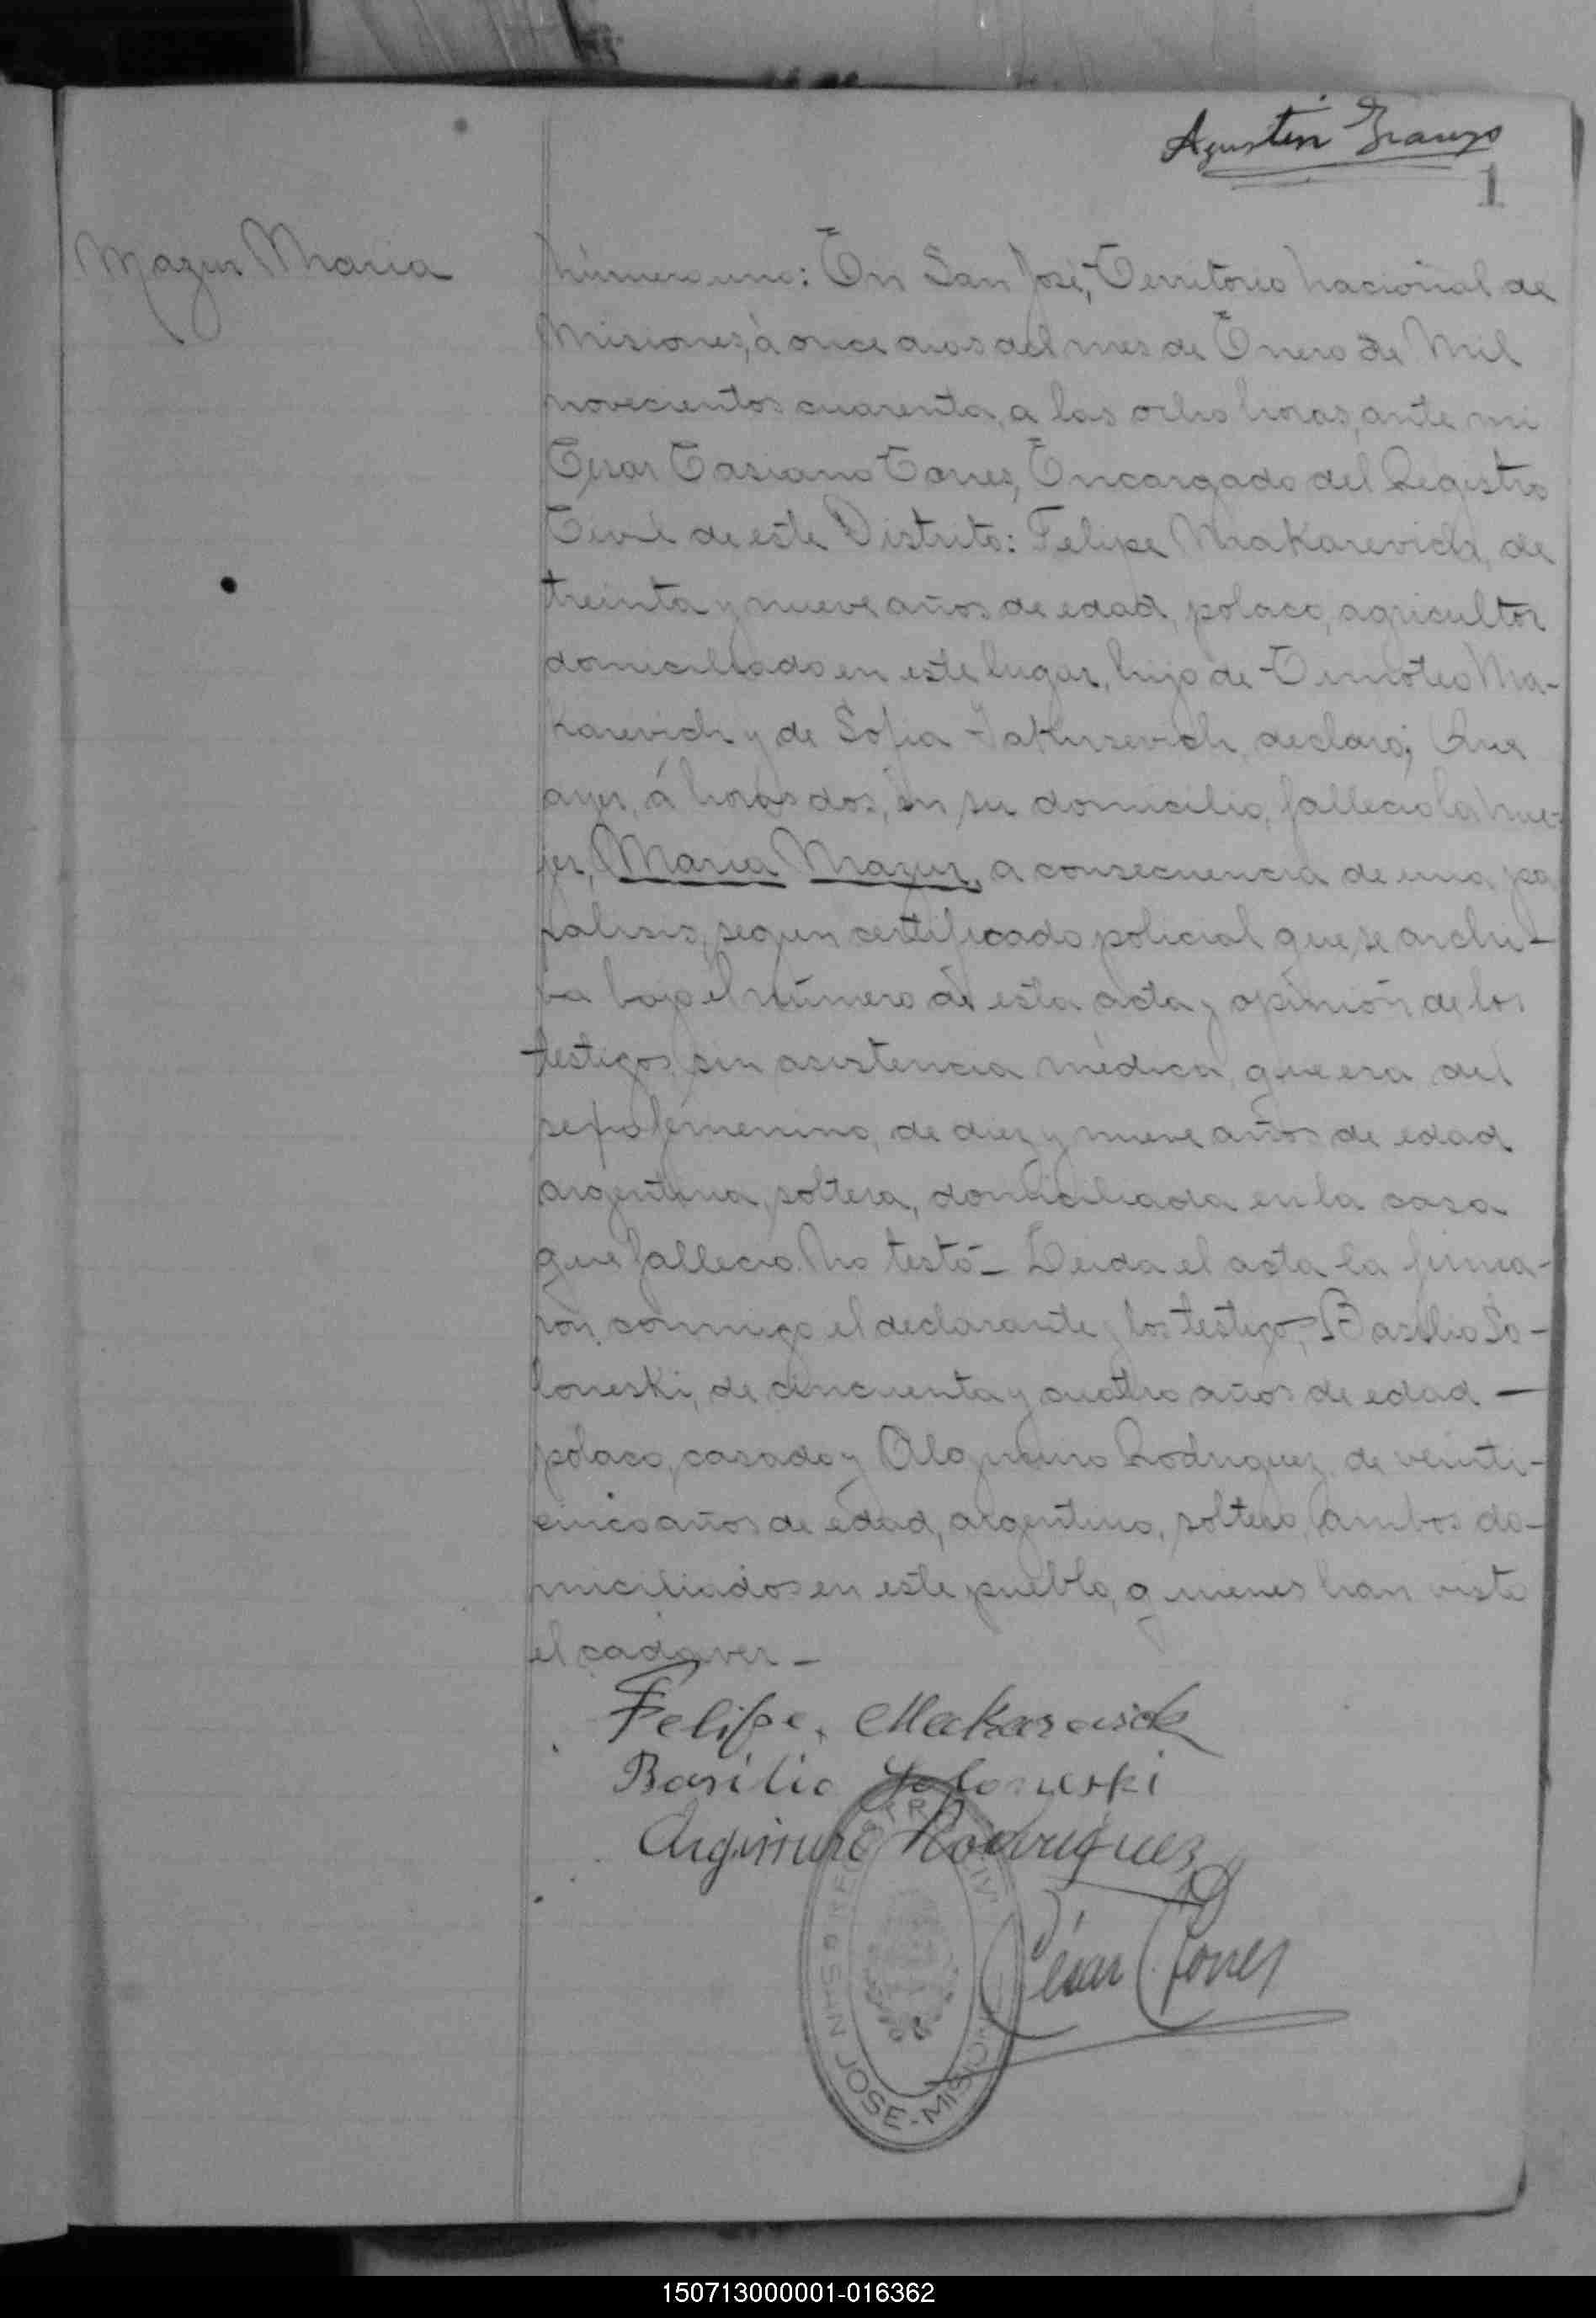 Agustin
1
Mazur Maria
Número uno: En San José, Territorio Nacional de
Misiones, á once dias del mes de Enero de Mil
novecientos cuarenta, a las ocho horas, ante mi
Cesar Casiano Torres, Encargado del Registro
Civil de este Distrito: Felipe Makarevich, de
treinta y nueve años de edad, polaco, agricultor
domiciliado en este lugar, hijo de Timoteo Ma-
karevich y de Sofia declaró; Que
ayer, á horas dos, en su domicilio, falleció la mu-
jer, Maria Mazur, a consecuencia de una pa
ralisis, segun certificado policial que se archi-
va bajo el número de esta acta y opinión de los
testigos, sin asistencia médica, que era del
sexo femenino, de diez y nueve años de edad
argentina, soltera, domiciliada en la casa
que falleció. No testó - Leida el acta la firma-
ron conmigo el declarante y los testigos, Basilio So-
loneski, de cincuenta y cuatro años de edad —
polaco, casado y Rodriguez, de veinti-
cinco años de edad, argentino, soltero, ambos do-
miciliados en este pueblo, quienes han visto
el cadaver -
Felipe
Basilio
Argimiro Rodriguez
César C. Torres
REGISTRO CIVIL
SAN JOSE - MISIONES
150713000001-016362